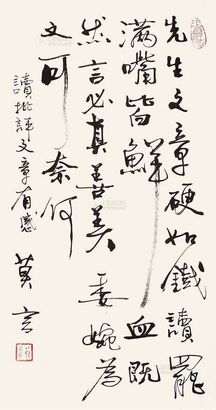 先生文章硬如鐵讀罷
滿嘴皆鮮血既
然言必真善美委婉為
文可奈何
讀批評文章有感
莫言